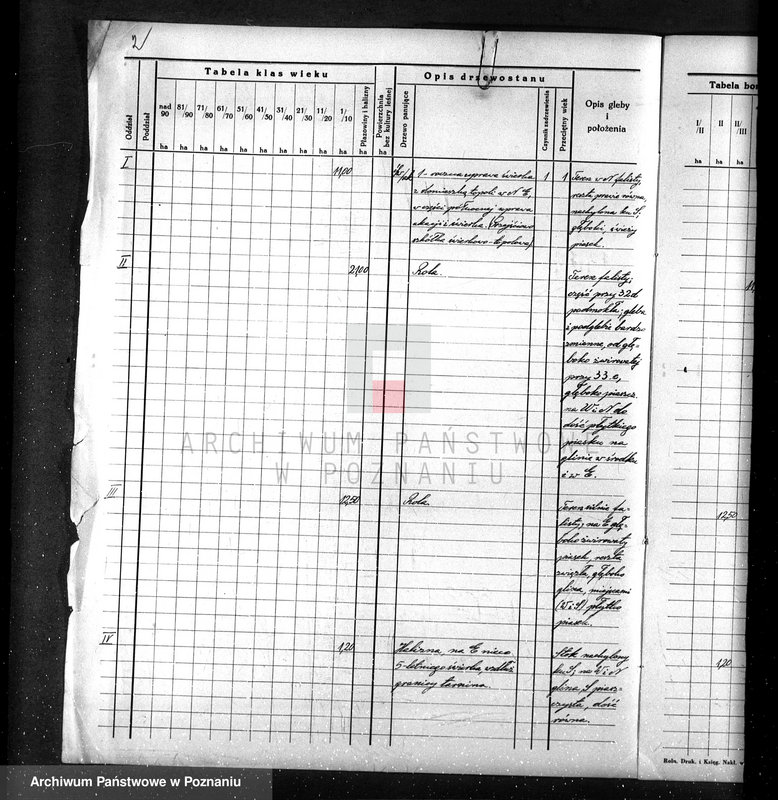 2
Tabela klas wieku
Opis drzewostanu
Tabela bo
Oddział
Poddział
nad 90
81/90
71/80
61/70
51/60
41/50
31/40
21/30
11/20
1/10
Płazowiny i halizny
Powierzchnia bez kultury leśnej
Drzewo panujące
Czynnik zadrzewienia
Przeciętny wiek
Opis gleby i położenia
I/II
II
II/III
ha ha ha ha ha ha ha ha ha ha ha ha
ha ha ha
I 11,00 1 - roczna uprawa świerka 1 1 Teren w N falisty,
z domieszką topoli w N E, reszta prawie równa,
w części północnej uprawa nachylona ku S,
akacji i świerka. głęboki, świeży
szkółka świerkowo-topolowa) piasek.
II 21,00 Rola. Teren falisty;
część przy 32d
podmokła; gleba
i podglebie bardzo
zmienne, od głę-
boko żwirowatej
przy 33 c,
głęboko piaszcz.
na W i N do
dość płytkiego
piasku na
glinie w środku
i w E.
III 12,50 Rola. Teren silnie fa-
listy; na E głę-
boko żwirowaty
piasek, reszta
zwięzła, głęboka
glina, miejscami
(W i S) płytko
piasek.
12,50
IV 1,20 Halizna, na E nieco Stok nachylony
5-letniego świerka, wzdłuż ku S; na W i N
granicy tarnina. glina, S piasz-
czysta, dość
równa.
1,20
Roln. Druk. i Księg. Nakł.
ARCHIWUM PAŃSTWO
W POZNANIU
Archiwum Państwowe w Poznaniu